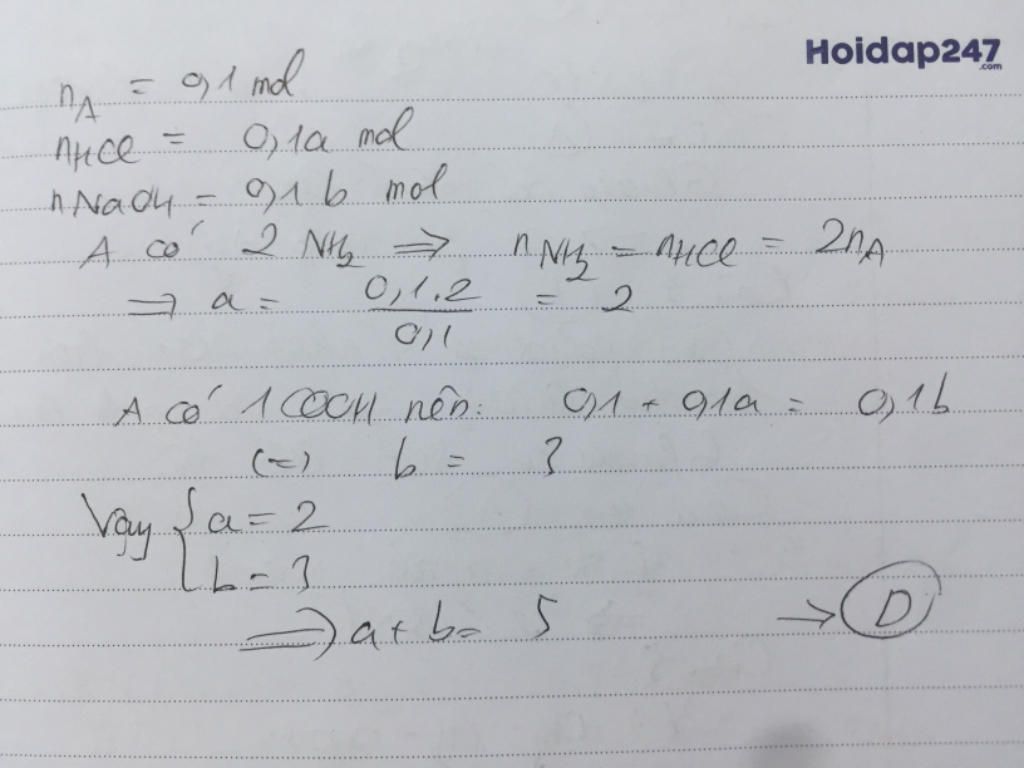 Hoidap247
.com
n_A = 0,1 mol
nHCl = 0,1a mol
nNaOH = 0,1 b mol
A có 2 NH₂ ⟹ n_NH₂ = nHCl = 2n_A
⟹ a = 0,1.2 / 0,1 = 2
A có 1 COOH nên: 0,1 + 0,1a = 0,1b
(=) b = 3
Vậy { a = 2
b = 3
⟹ a + b = 5 → D